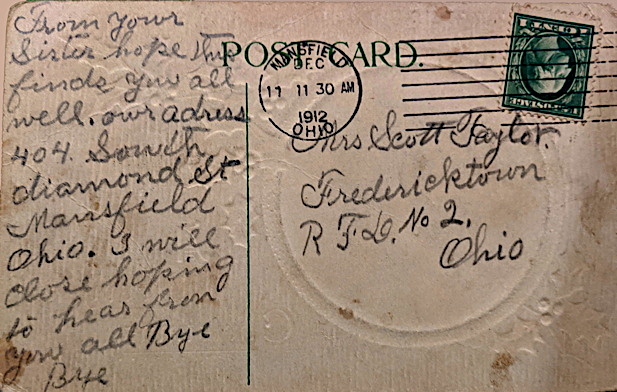 From your
Sister hope this
finds you all
well. our adress
404. South
diamond St
Mansfield
Ohio. I will
Close hoping
to hear from
you all Bye
Bye
POST CARD.
MANSFIELD
DEC
11 11 30 AM
1912
OHIO
Mrs Scott Taylor.
Fredericktown
R F.D. No 2.
Ohio